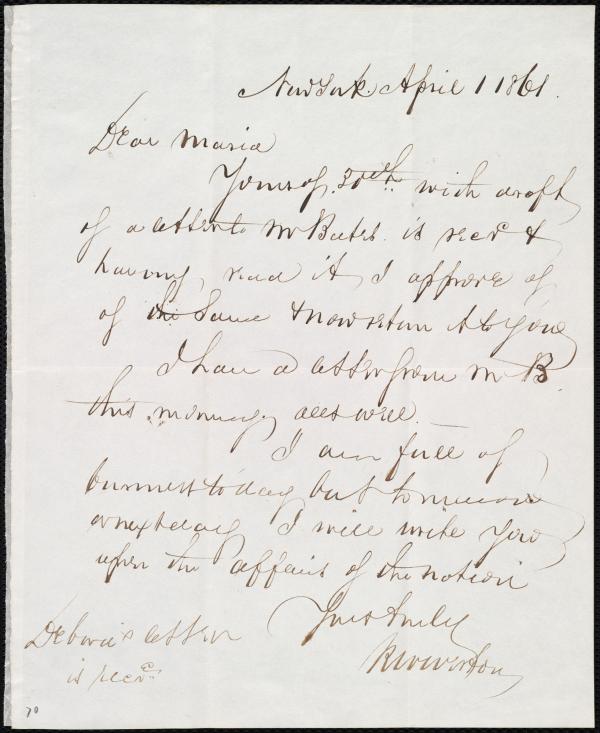 New York April 1 1861.
Dear Maria
Yours of 30th with draft
of a letter to Mr Bates is recd &
having read it I approve of
of the same & now return it to you
I have a letter from Mr B.
this morning all well
I am full of
business to day but tomorrow
or next day I will write you
upon the affairs of the nation
Yours truly
Debora's letter
is recd.
70